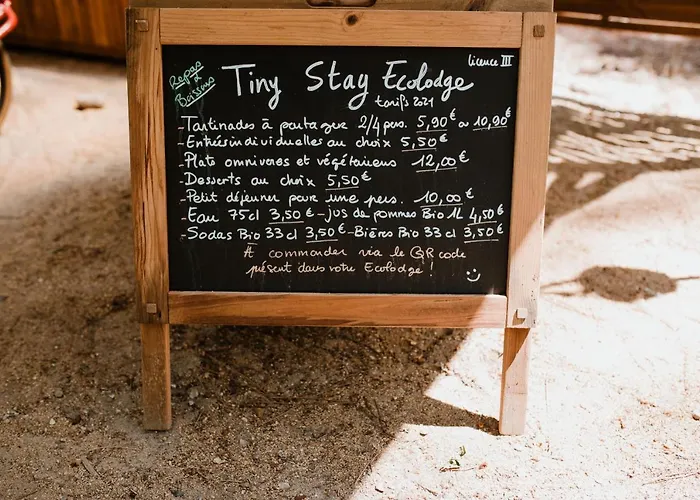 Repas & Boissons
Tiny Stay Ecolodge
licence III
tarifs 2021
-Tartinades à partager 2/4 pers. 5,90€ à 10,90€
-Entrées individuelles au choix 5,50€
-Plats omnivores et végétariens 12,00€
-Desserts au choix 5,50€
-Petit déjeuner pour une pers. 10,00€
-Eau 75cl 3,50€ -jus de pommes Bio 1L 4,50€
-Sodas Bio 33cl 3,50€ -Bières Bio 33cl 3,50€
A commander via le QR code
présent dans votre Ecolodge !